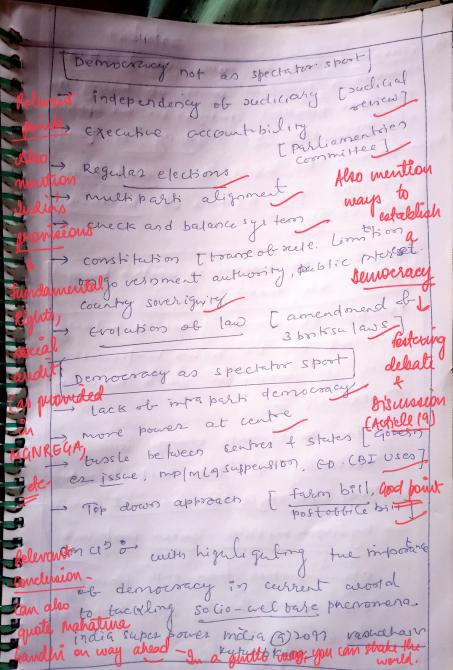 Democracy not as spectator sport
→ independency of judiciary [Judicial review]
→ executive accountability
[Parliamentaries committee]
→ Regular elections
→ multiparti alignment
→ check and balance system
→ constitution [
government authority, public
country soveriguity
→ Evolution of law [amendmend of
3 british laws]
Democracy as spectator sport
→ lack of intra parti democracy
→ more power at centre
→ tussle between centres & states [Govern
or issue, MP/MLA suspension, ED, CBI uses]
→ Top down approach [farm bill,
postoffice bill]
with highlighting the importance
of democracy in current world
to tackling socio-welfare phenomena
india super power india
Relevant
points
Also
mention
India's
provisions
↓
Fundamental
Rights,
social
audit
as provided
in
MGNREGA,
etc-
Also mention
ways to
establish
a
democracy
↓
fostering
debate
&
Discussion
(Article 19)
Good point
Relevant
conclusion-
can also
quote Mahatma
Gandhi on way ahead - In a gentle way, you can shake the
world.